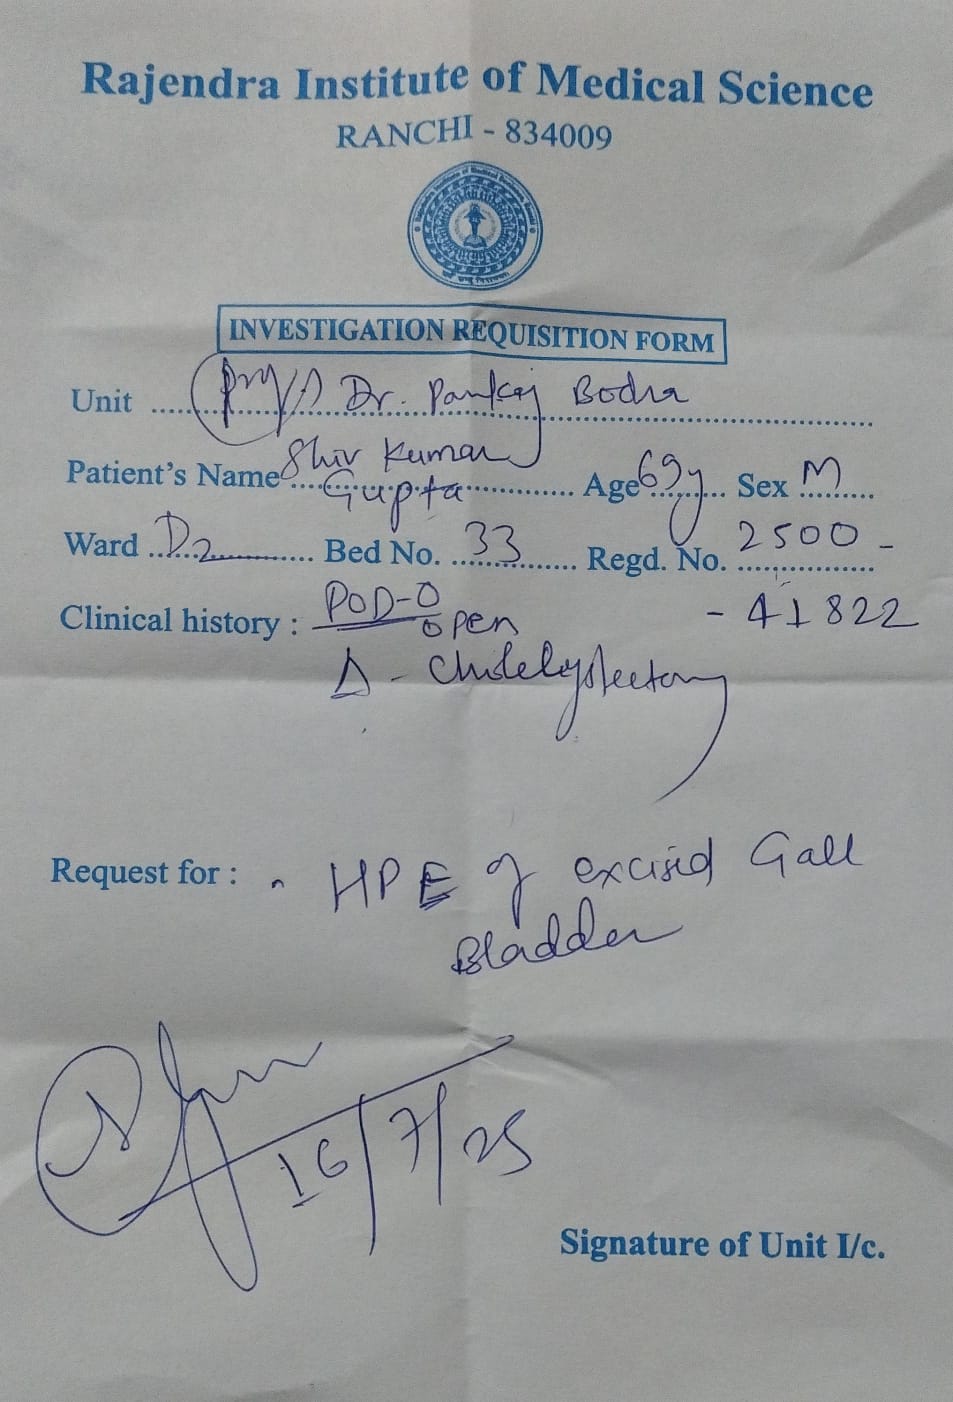 Rajendra Institute of Medical Science
RANCHI - 834009
INVESTIGATION REQUISITION FORM
Unit Dr. Pankaj Bodra
Patient's Name Shiv Kumar Gupta Age 69y Sex M
Ward D2 Bed No. 33 Regd. No. 2500 -
Clinical history : POD-0 - 41822
open
Δ - Cholelystectomy
Request for : HPE of excised Gall
Bladder
16/7/25
Signature of Unit I/c.